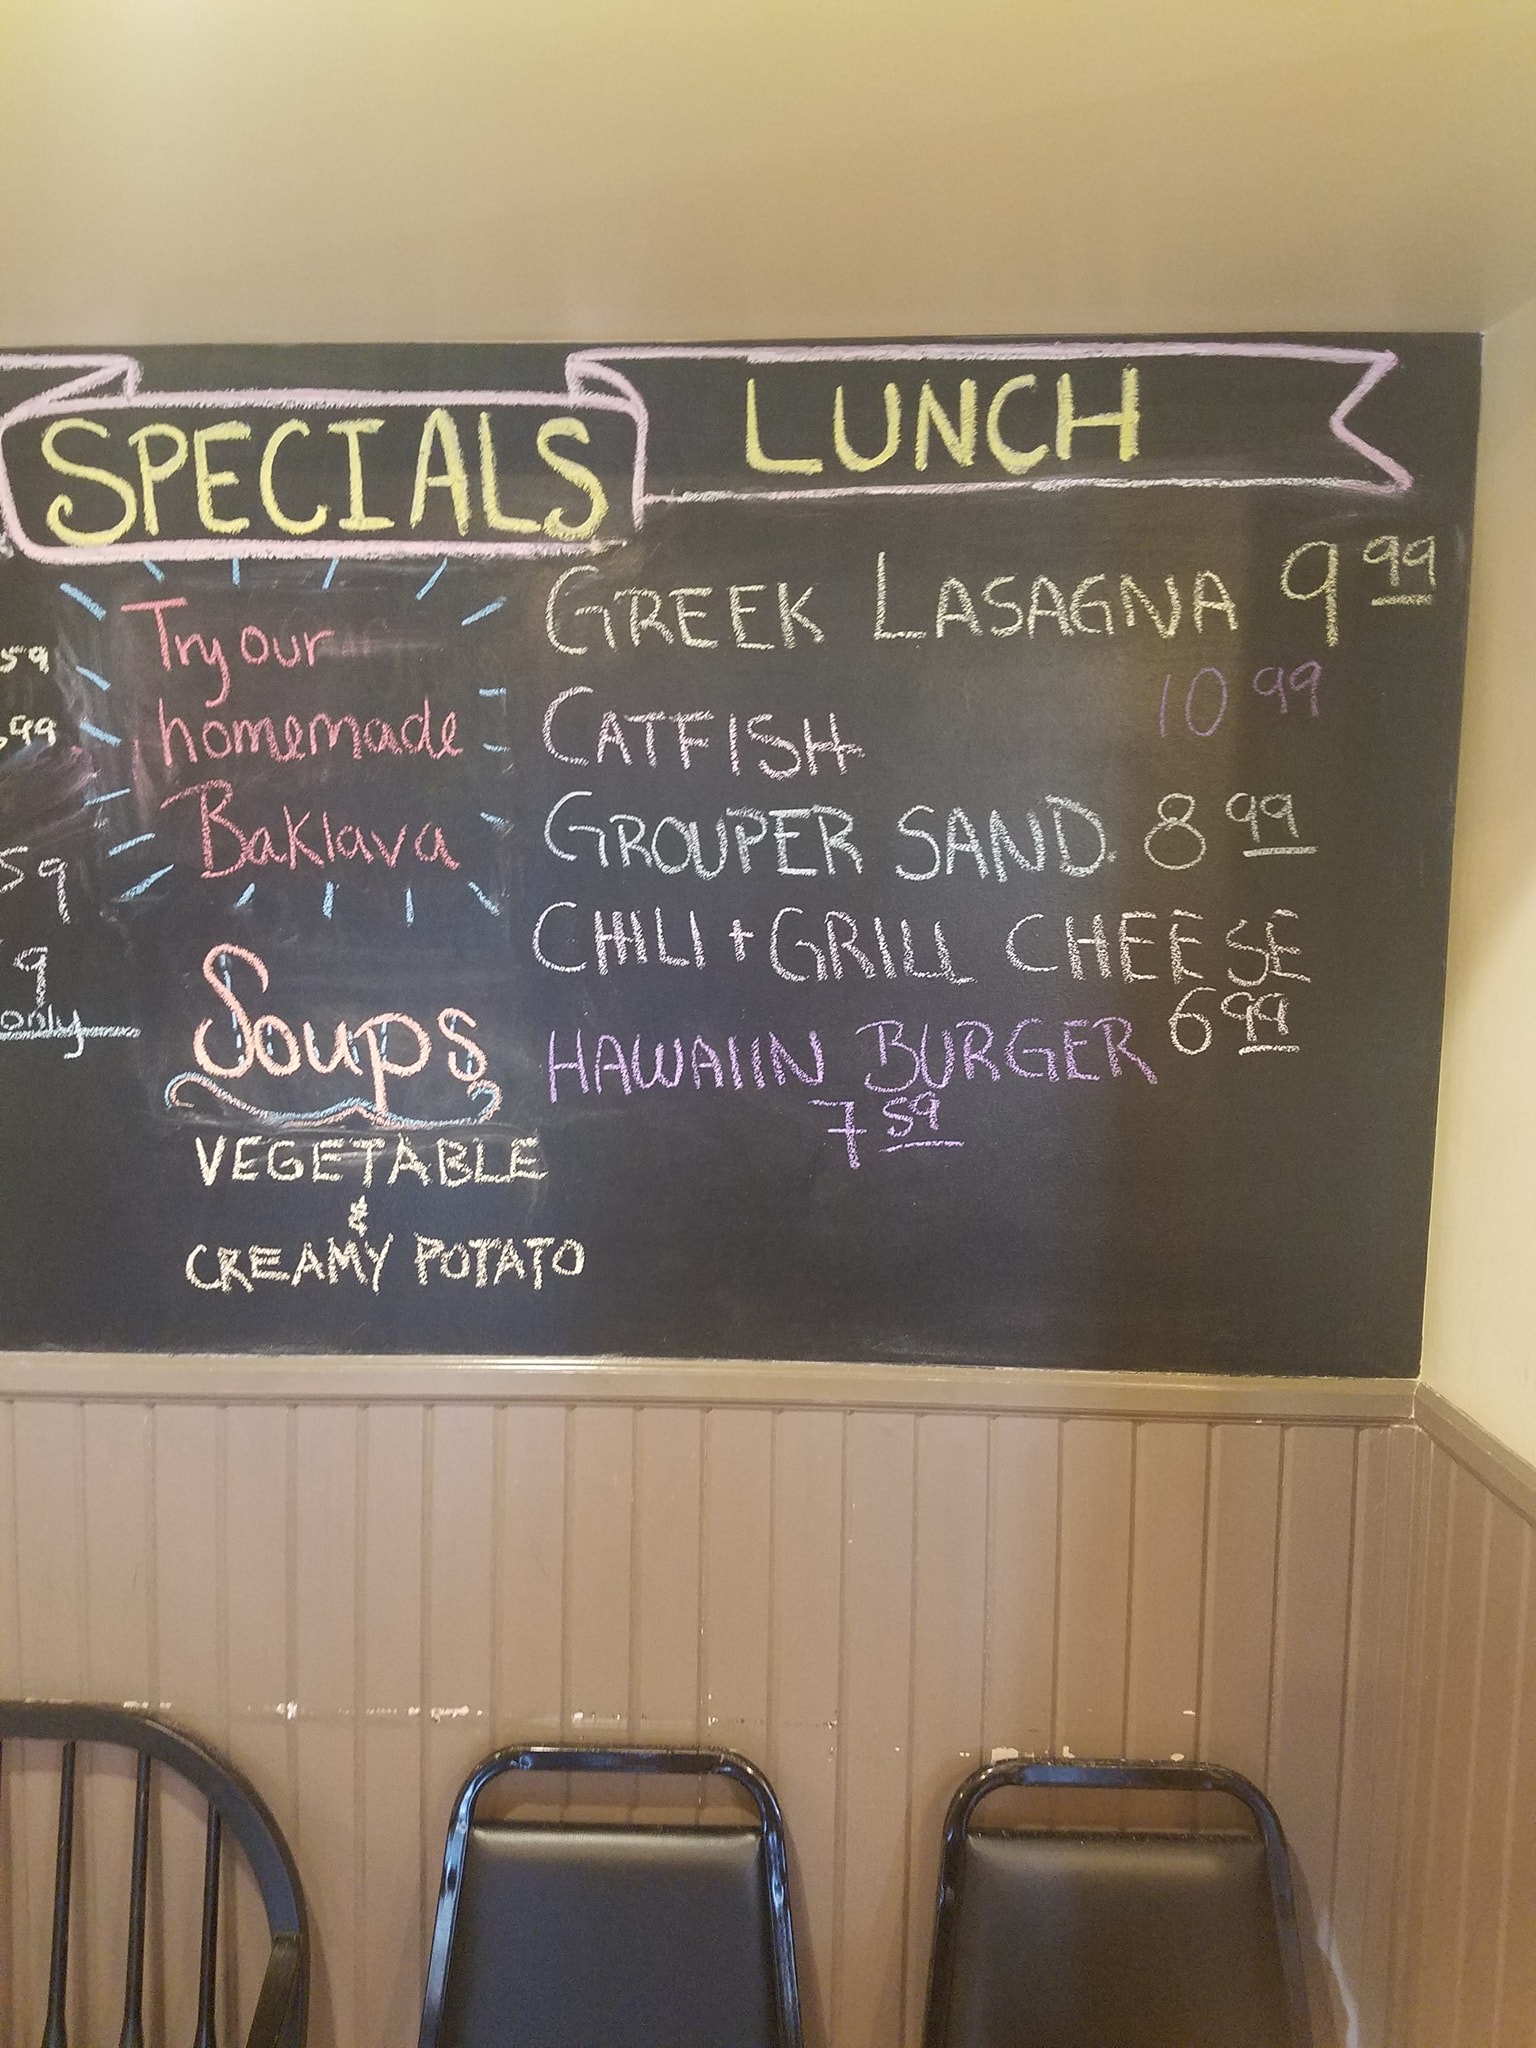 SPECIALS
LUNCH
59
99
59
9
only
Try our
homemade
Baklava
Soups
VEGETABLE
&
CREAMY POTATO
GREEK LASAGNA 9 99
CATFISH 10 99
GROUPER SAND. 8 99
CHILI + GRILL CHEESE
6 99
HAWAIIN BURGER
7 59